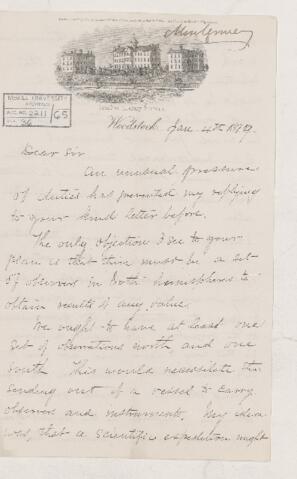 McGILL UNIVERSITY
ARCHIVES
ACC. NO. 2211
65
Woodstock Jan 4th 1879.
Dear Sir
An unusual pressure
of duties has prevented my replying
to your kind letter before.
The only objection I see to your
plan is that there must be a set
of observers in both hemispheres to
obtain results of any value.
We ought to have at least one
set of observations north and one
south This would necessitate the
sending out of a vessel to carry
observers and instruments. My idea
was, that a scientific expedition might